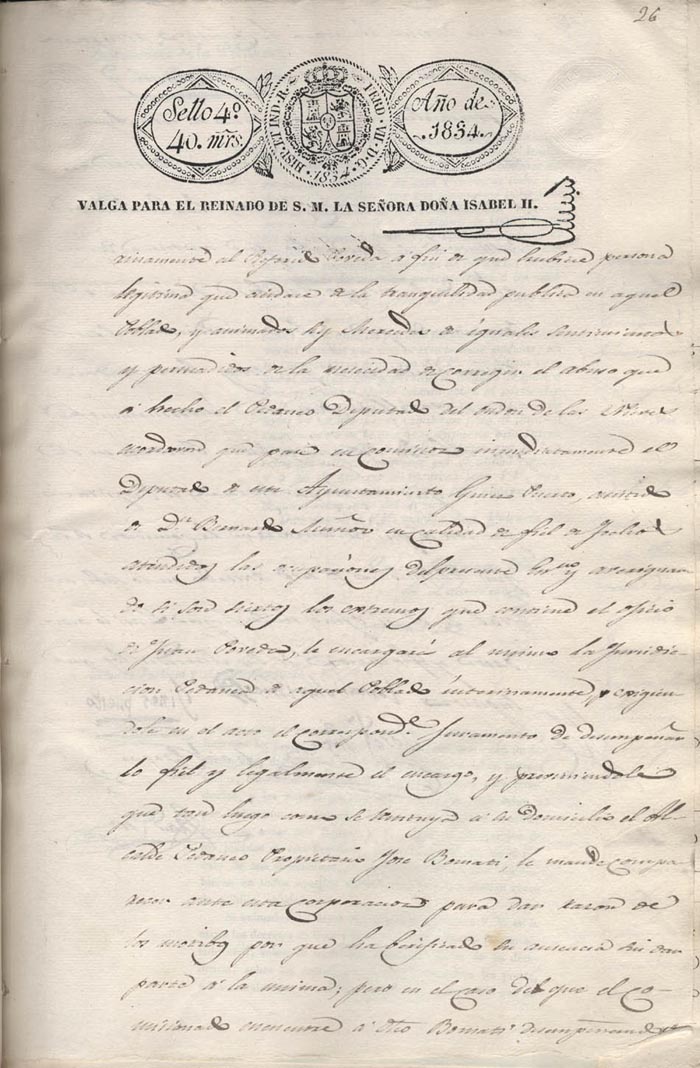 26
Sello 4º
40. mrs.
HISP. ET IND. R. FERD. VII. D. G.
1834.
Año de
1834.
VALGA PARA EL REINADO DE S. M. LA SEÑORA DOÑA ISABEL II.
rinamente al Poveda a fin de que hubiese persona
legitima que cuidase de la tranquilidad publica en aquel
Poblado, y animados sus Mercedes de iguales sentimientos
y persuadidos de la necesidad de corregir el abuso que
á hecho el Pedaneo Diputado del orden de las
acordaron que pase en comision inmediatamente el
Diputado de este Ayuntamiento Gines Puerto,
de Dn. Bernardo Muñoz en calidad de fiel de fechos
atendidas las ocupaciones del presente y averiguan
do si son siertos los extremos que contiene el oficio
de Juan Poveda, le encargará al mismo la Jurisdic
cion Pedanea de aquel Poblado interinamente, exigien
dole en el acto el correspondte. Juramento de desempeñar
lo fiel y legalmente el encargo, y previniendole
que tan luego como se á su domicilio el Al-
calde Pedaneo Propietario Jose Bernati, le mande compa
recer ante esta corporacion para dar razon de
los motibos por que ha su ausencia sin dar
parte á la misma; pero en el caso de que el Co-
misionado encuentre á dho Bernati desempeñando